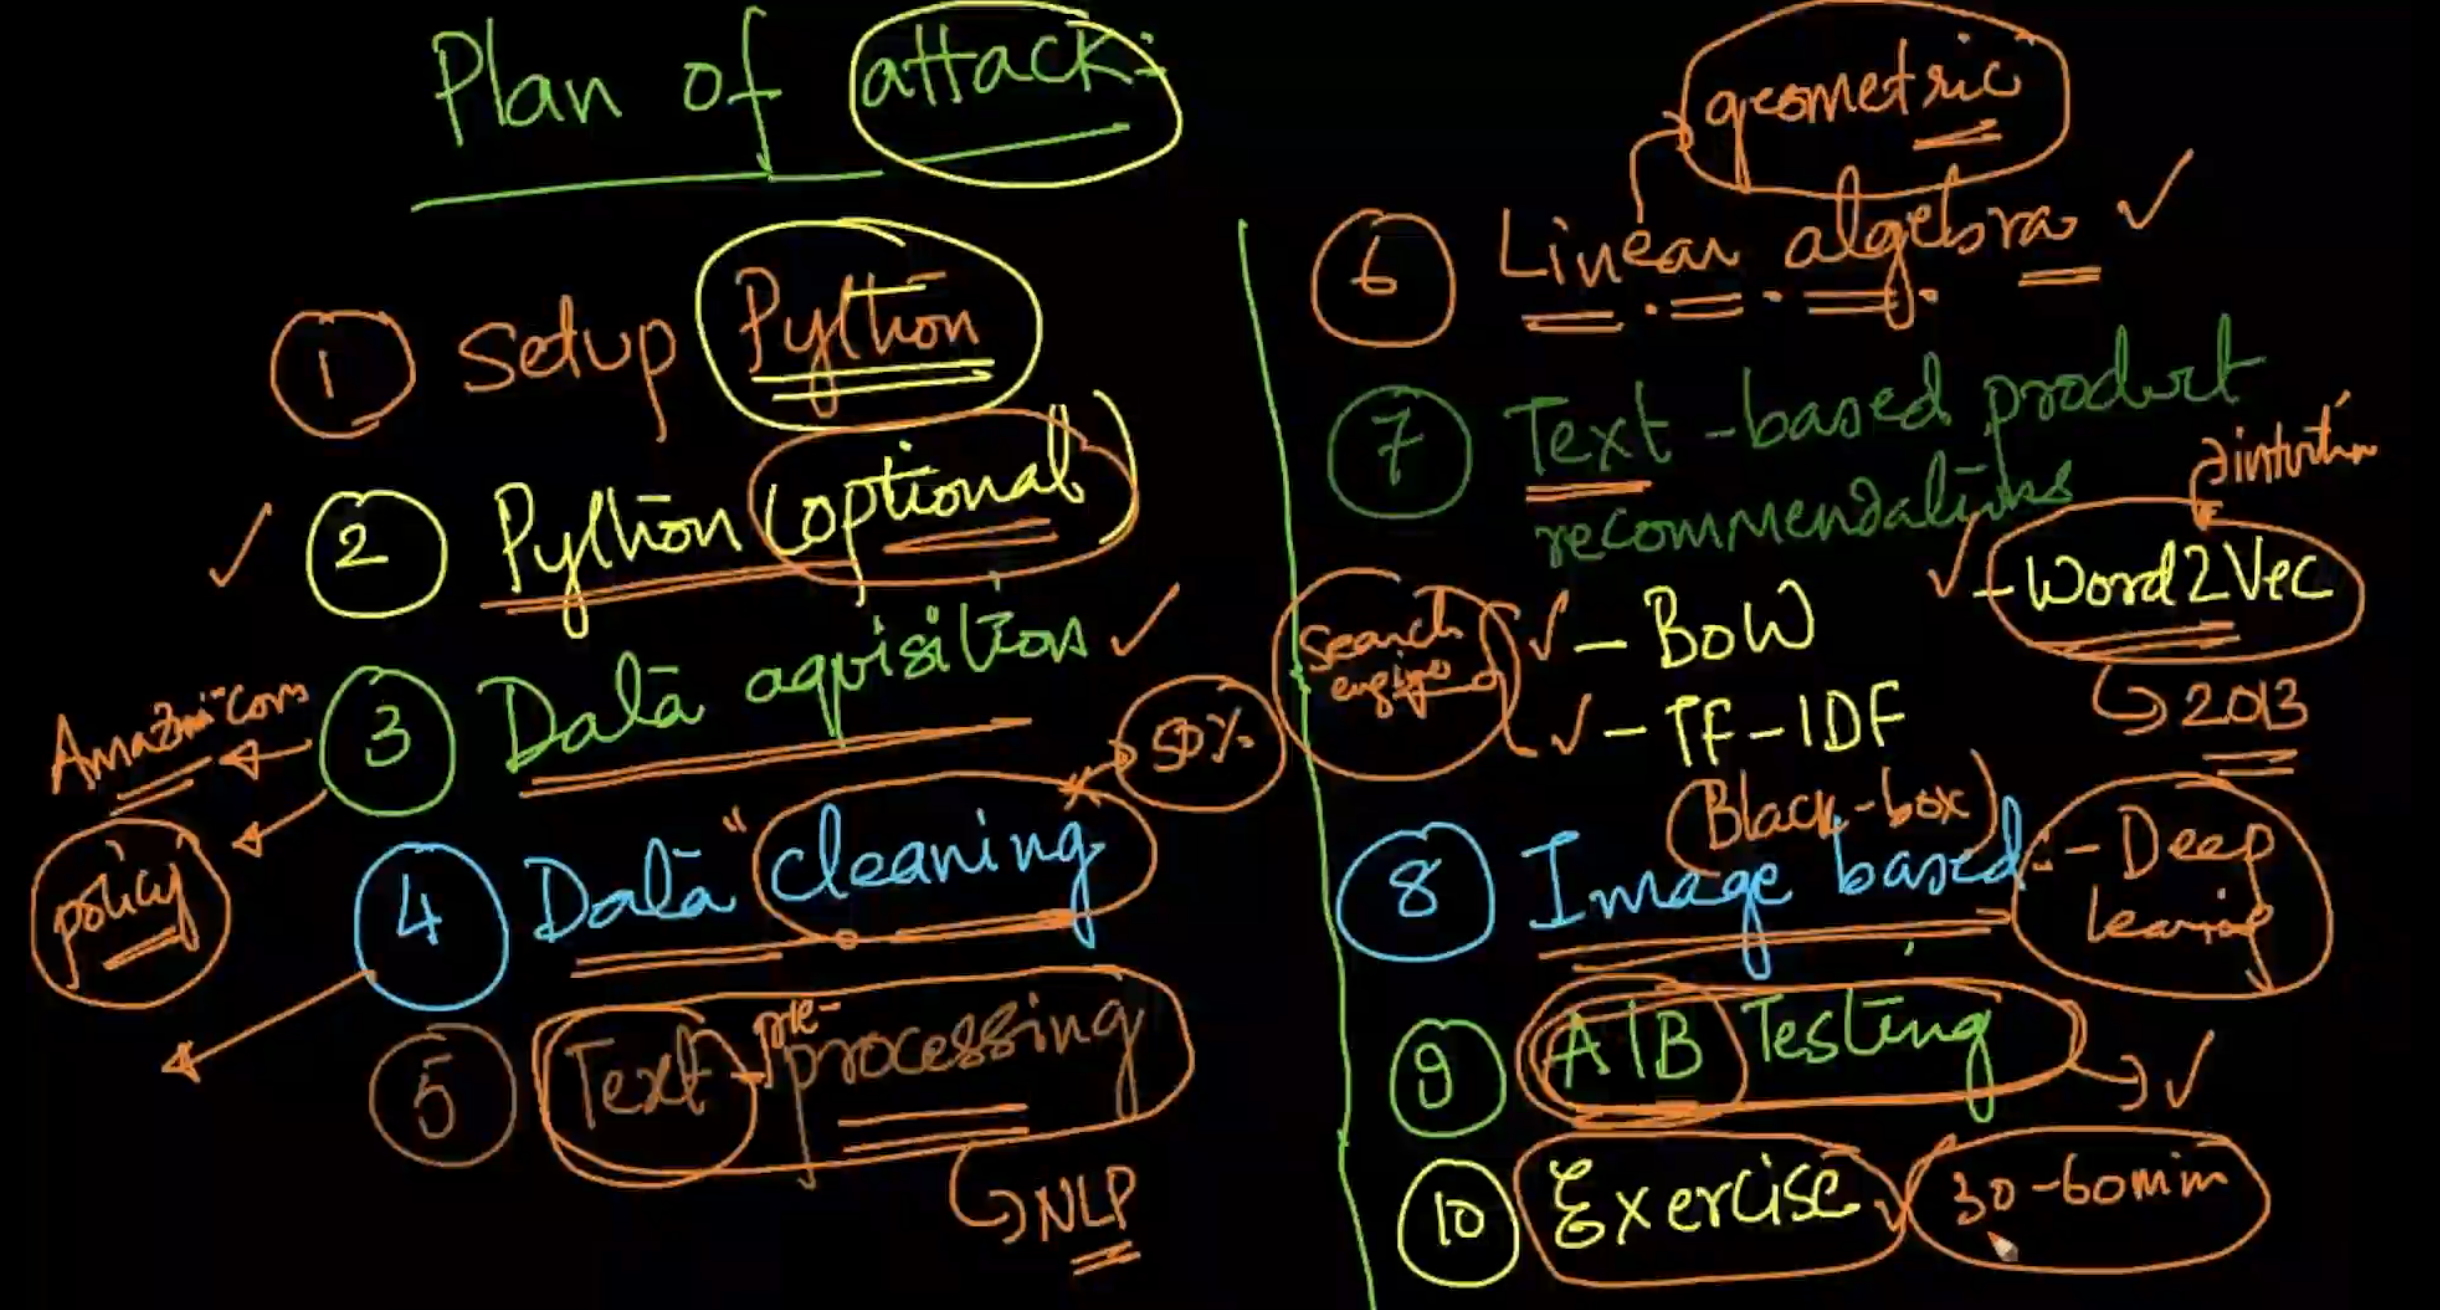 Plan of attack:
1 Setup Python
2 Python (optional)
3 Data aqvisition
Amazon.com
policy
4 Data "cleaning
50%
5 Text-pre-processing
NLP
geometric
6 Linear algebra
7 Text-based product
recommendations
intuition
- Word2Vec
2013
Search
engine
- BoW
- TF-IDF
(Black-box)
8 Image based:- Deep
learning
9 A|B Testing
10 Exercise 30-60min